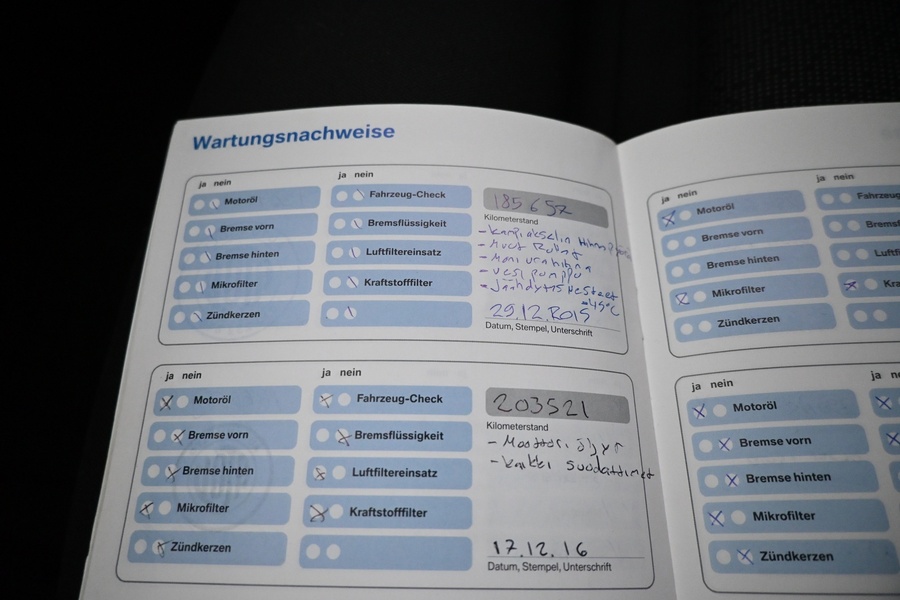 Wartungsnachweise
ja nein
Motoröl
Bremse vorn
Bremse hinten
Mikrofilter
Zündkerzen
ja nein
Fahrzeug-Check
Bremsflüssigkeit
Luftfiltereinsatz
Kraftstofffilter
185 657
Kilometerstand
- Monivanhihna
- Vesi pumppu
- Jäähdytis nesteet
29.12.2015
Datum, Stempel, Unterschrift
ja nein
Motoröl
Bremse vorn
Bremse hinten
Mikrofilter
Zündkerzen
ja nein
Fahrzeug-Check
Bremsflüssigkeit
Luftfiltereinsatz
Kraftstofffilter
203521
Kilometerstand
- Moottori öljyt
- kaikki suodattimet
17.12.16
Datum, Stempel, Unterschrift
ja nein
Motoröl
Bremse vorn
Bremse hinten
Mikrofilter
Zündkerzen
ja nein
Fahrzeug
Bremsf
Luftfi
Kra
ja nein
Motoröl
Bremse vorn
Bremse hinten
Mikrofilter
Zündkerzen
ja ne